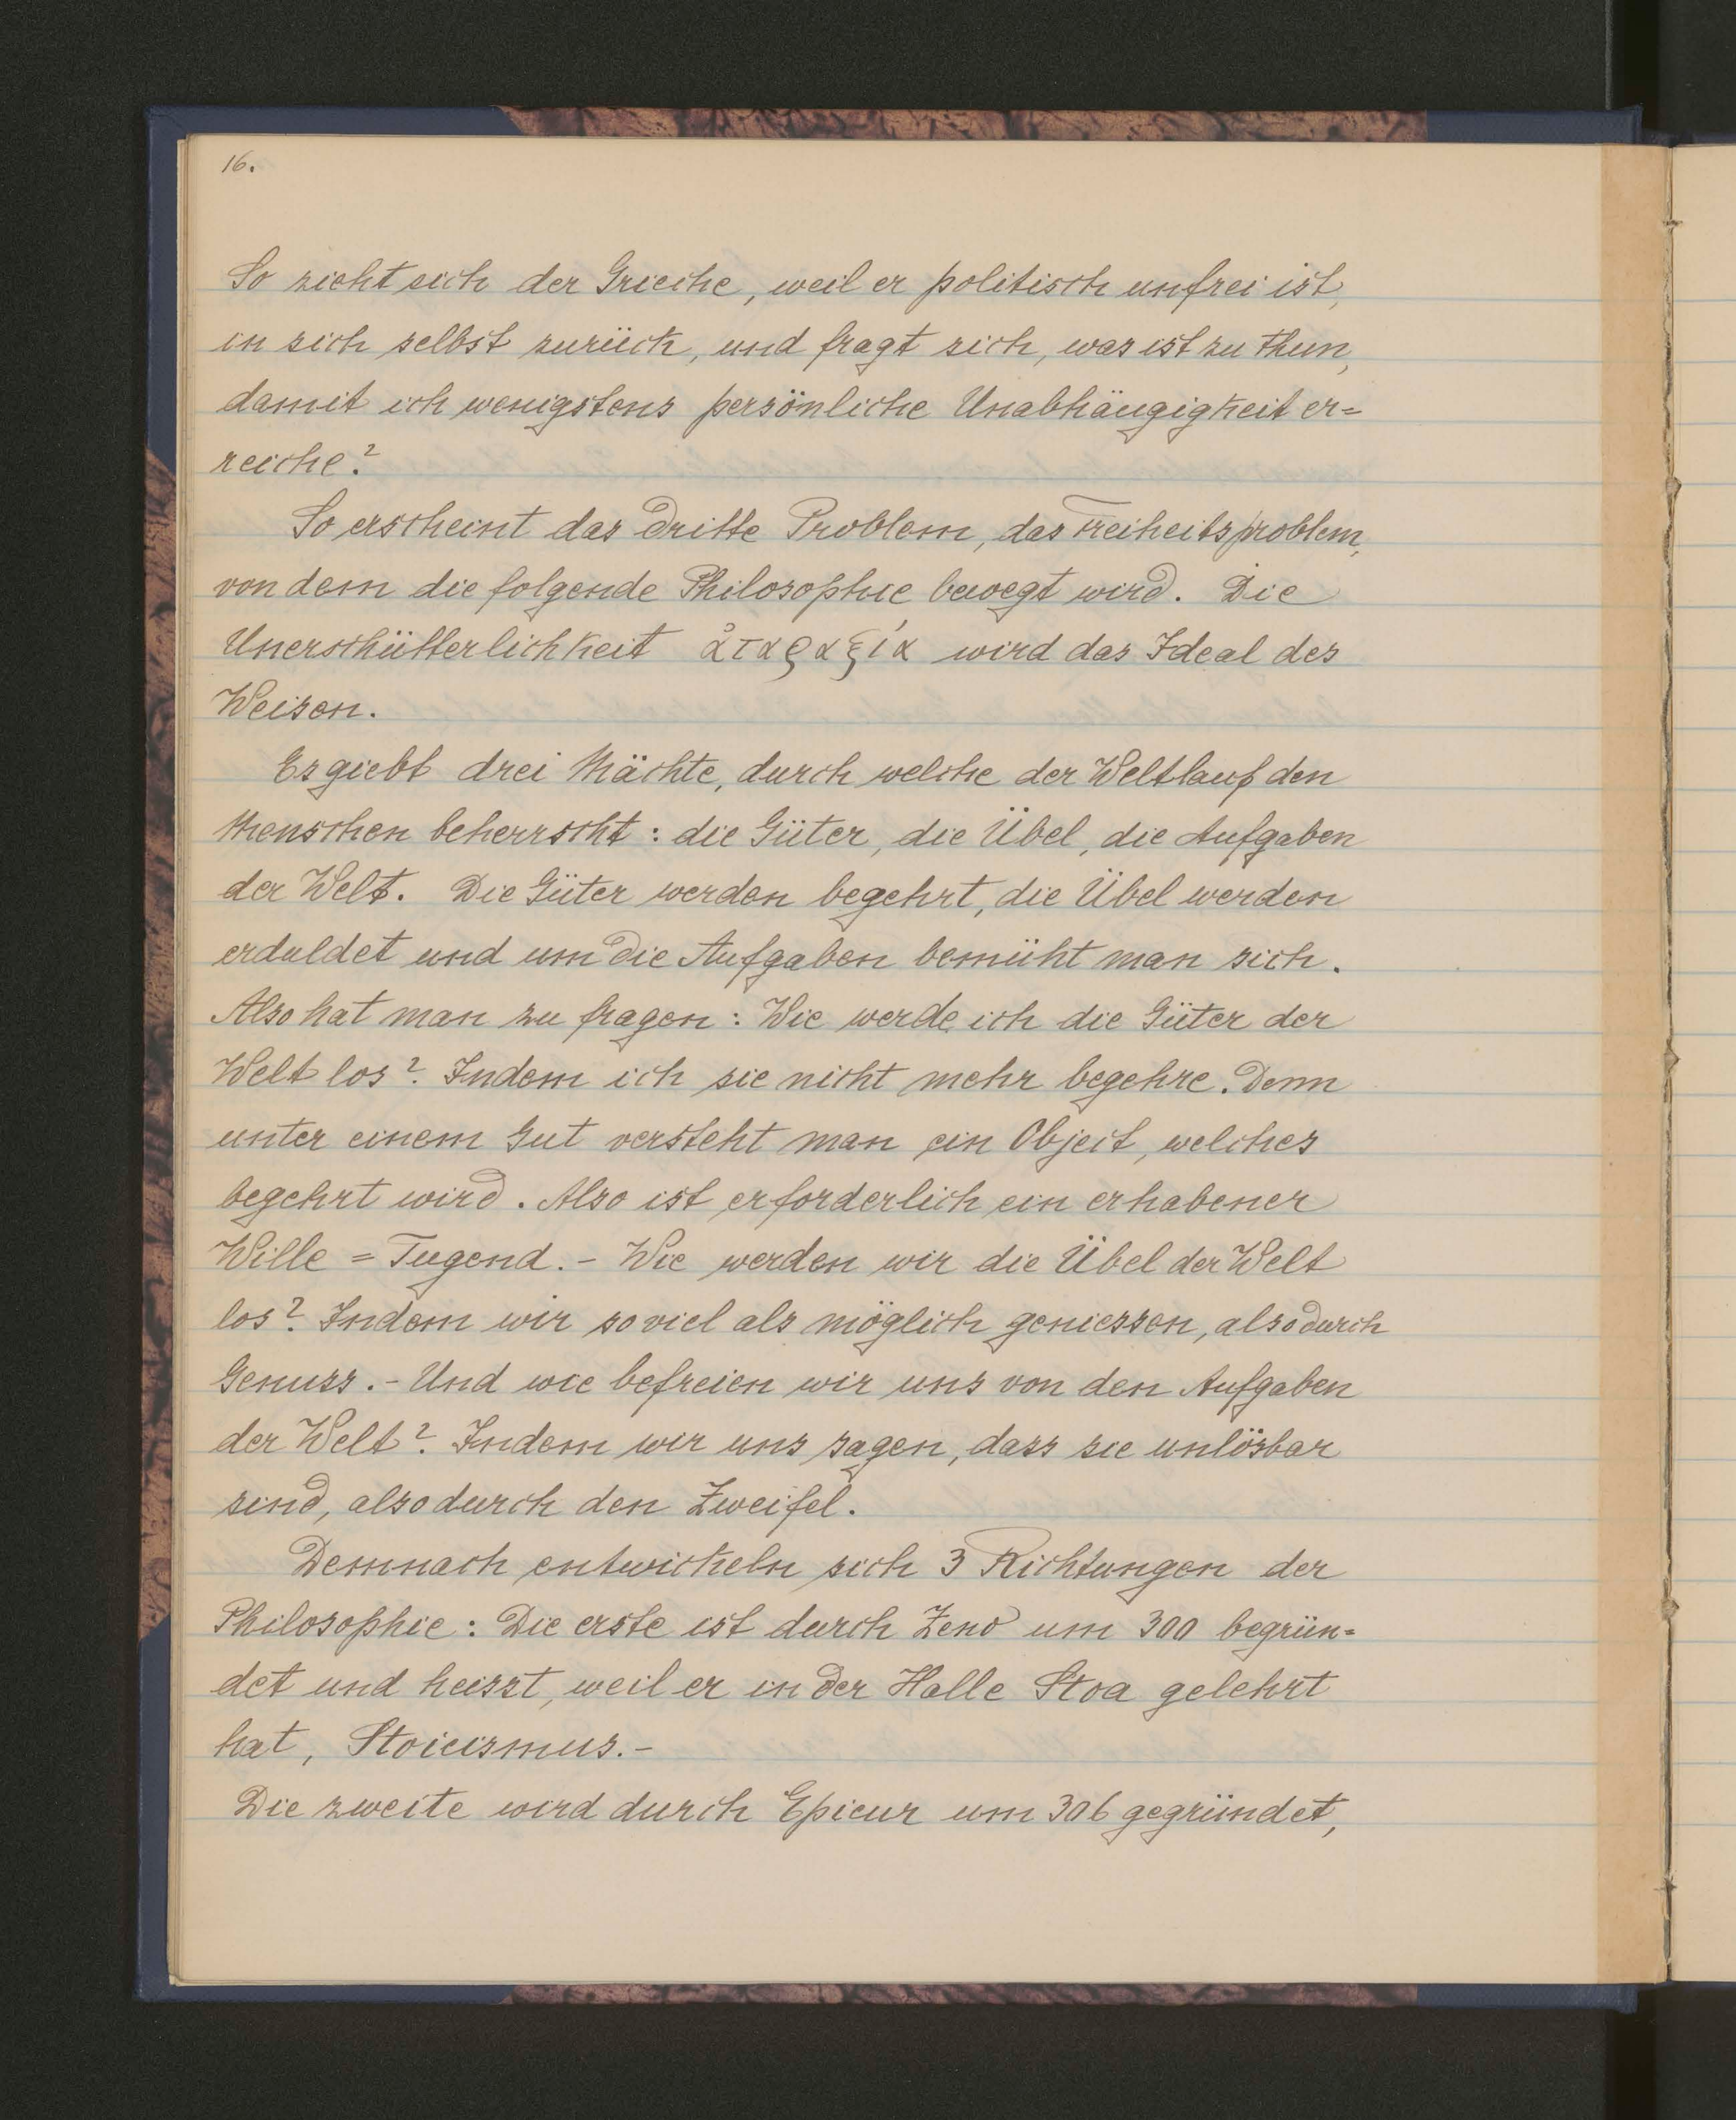 16.
So zieht sich der Grieche, weil er politisch unfrei ist,
in sich selbst zurück, und fragt sich, was ist zu thun,
damit ich wenigstens persönliche Unabhängigkeit er=
reiche?
So erscheint das dritte Problem, das Freiheitsproblem,
von dem die folgende Philosophie bewegt wird. Die
Unerschütterlichkeit ἀταραξία wird das Ideal des
Weisen.
Es giebt drei Mächte, durch welche der Weltlauf den
Menschen beherrscht: die Güter, die Übel, die Aufgaben
der Welt. Die Güter werden begehrt, die Übel werden
erduldet und um die Aufgaben bemüht man sich.
Also hat man zu fragen: Wie werde ich die Güter der
Welt los? Indem ich sie nicht mehr begehre. Denn
unter einem Gut versteht man ein Object, welches
begehrt wird. Also ist erforderlich ein erhabener
Wille = Tugend. - Wie werden wir die Übel der Welt
los? Indem wir so viel als möglich geniessen, also durch
Genuss. - Und wie befreien wir uns von den Aufgaben
der Welt? Indem wir uns sagen, dass sie unlösbar
sind, also durch den Zweifel.
Demnach entwickeln sich 3 Richtungen der
Philosophie: Die erste ist durch Zeno um 300 begrün=
det und heisst, weil er in der Halle Stoa gelehrt
hat, Stoicismus. -
Die zweite wird durch Epicur um 306 gegründet,